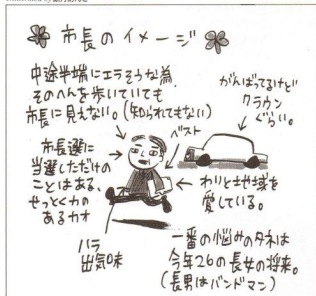 市長のイメージ
中途半端にエラそうな為、
そのへんを歩いていても
市長に見えない。(知られてもない)
がんばってるけど
クラウン
ぐらい。
ベスト
市長選に
当選しただけの
ことはある、
せっとく力の
あるカオ
わりと地域を
愛している。
ハラ
出気味
一番の悩みのタネは
今年26の長女の将来。
(長男はバンドマン)